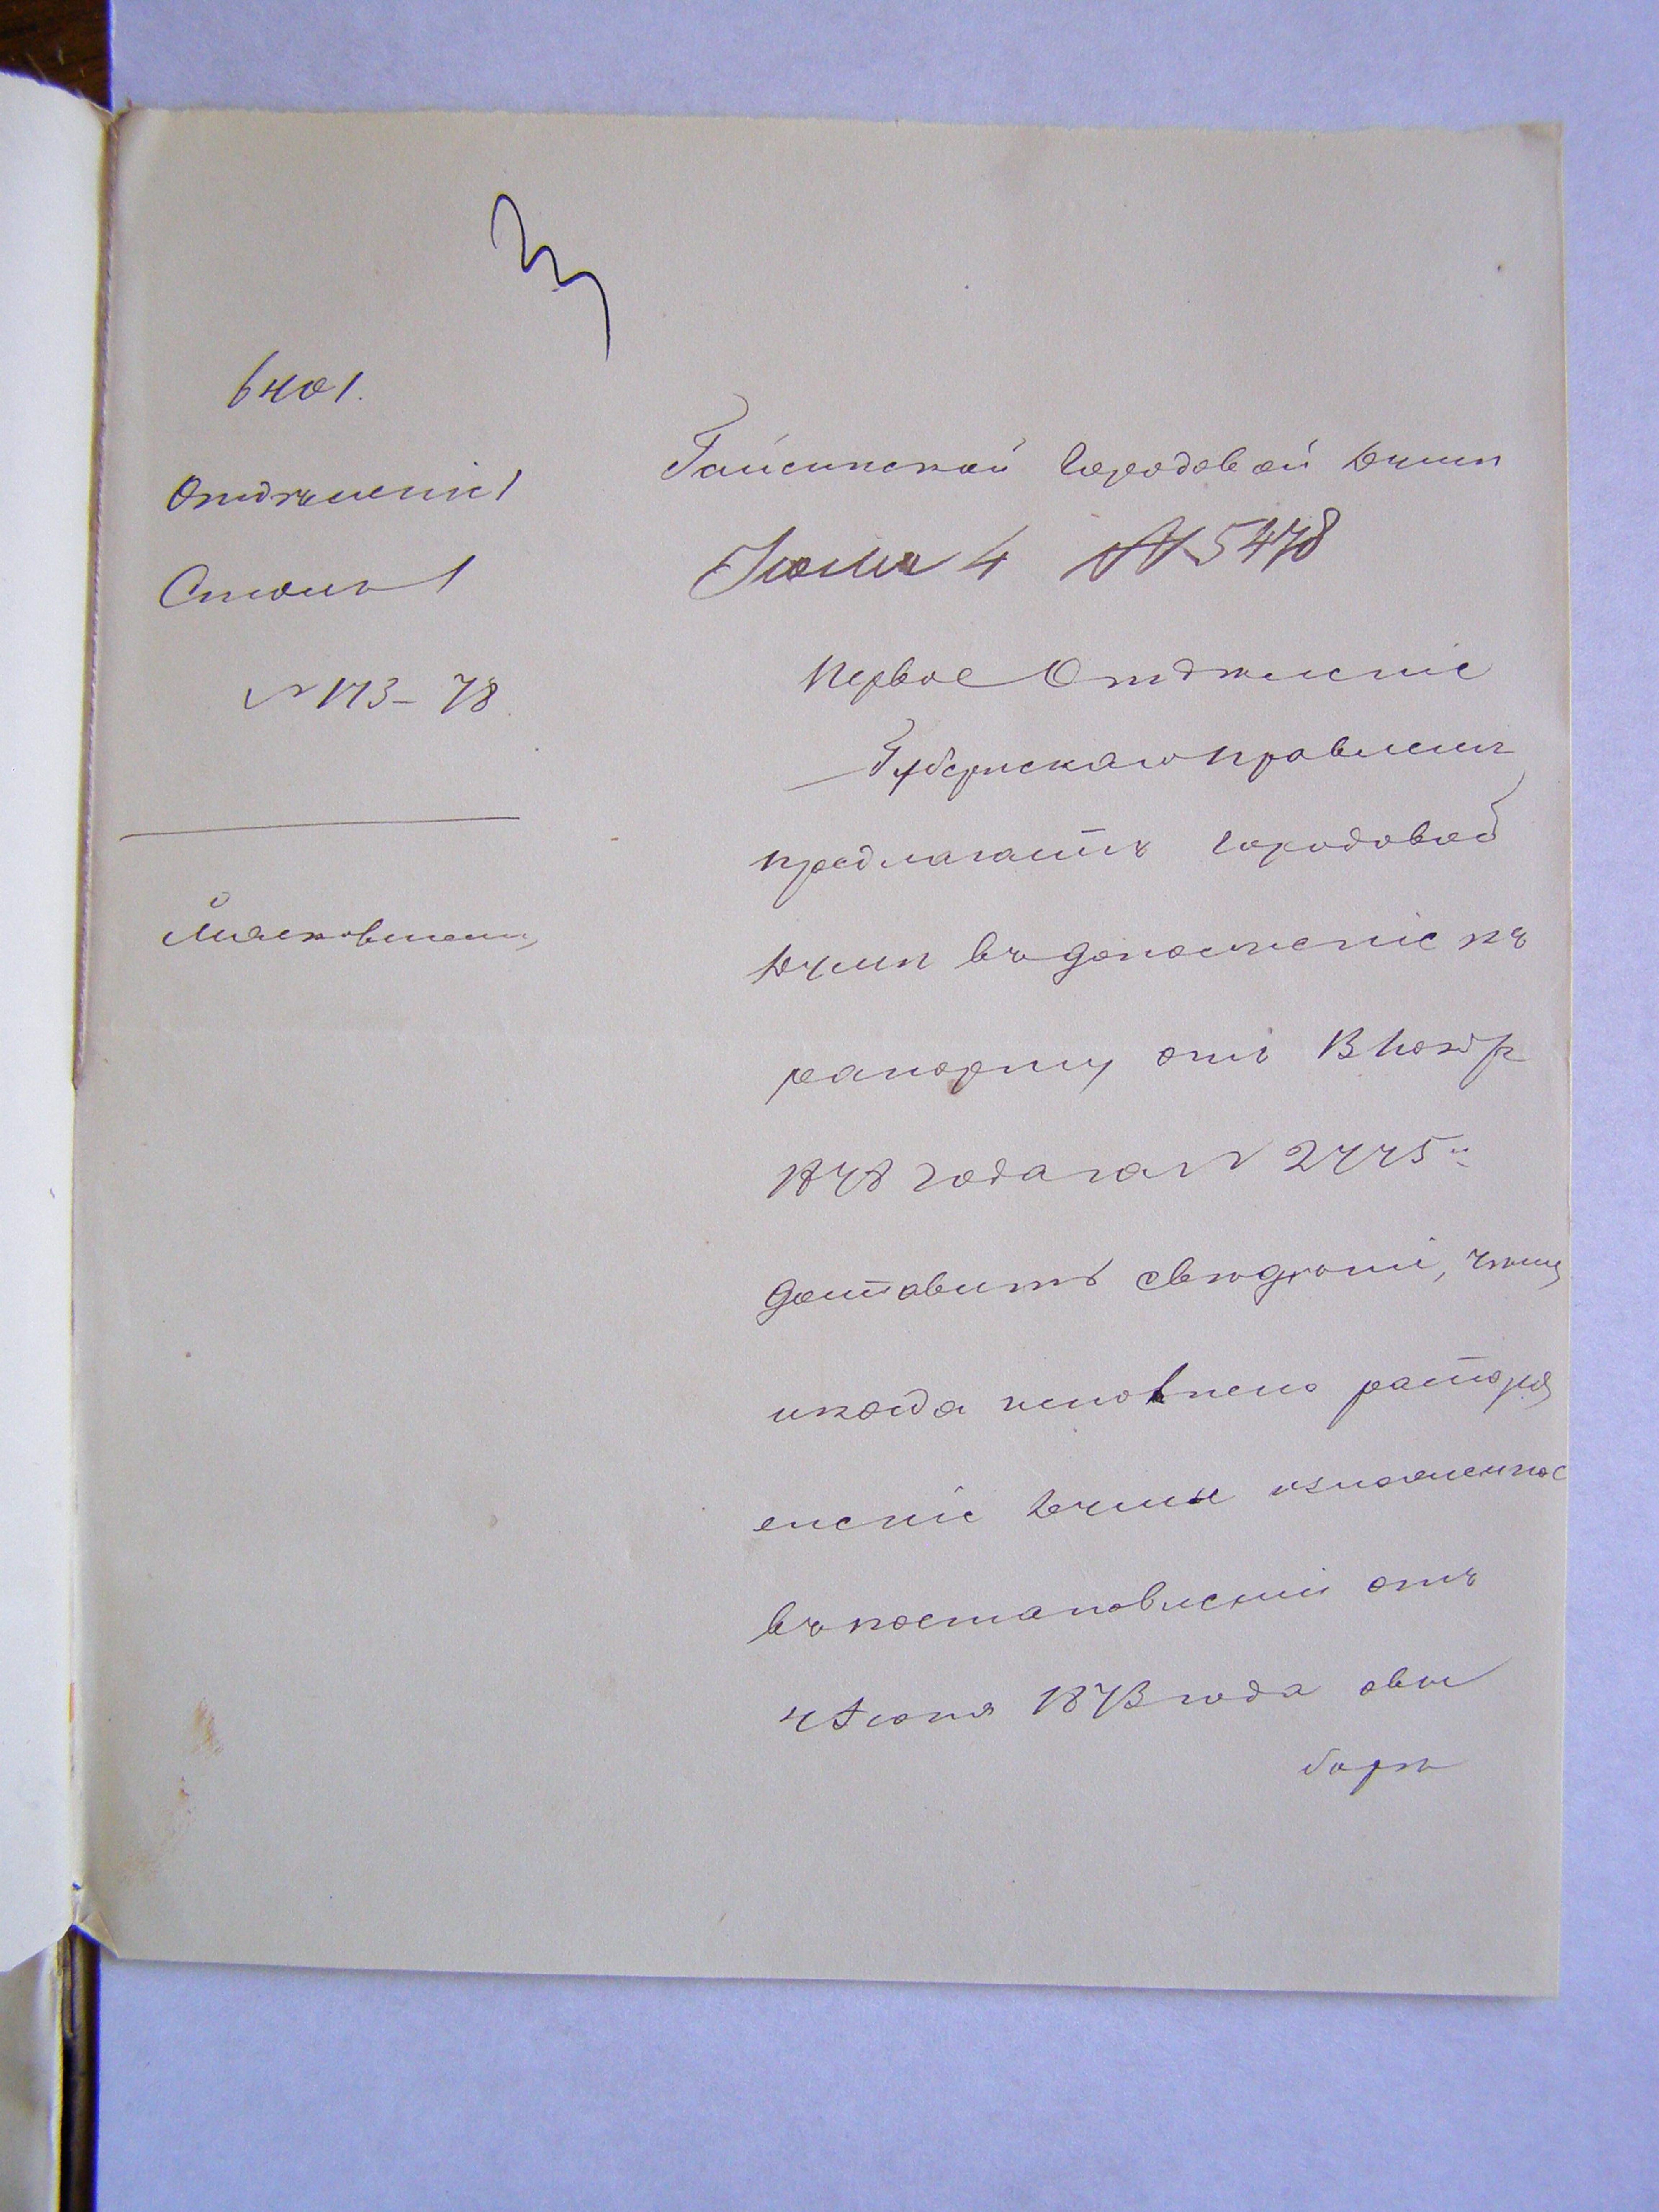 6401.
Отдѣленіе 1
Столъ 1
№ 173–78
Гайсинской Городовой Думѣ
Іюля 4 № 5478
Первое Отдѣленіе
Губернскаго Правленія
предлагаетъ Городовой
Думѣ въ дополненіе къ
рапорту отъ
1878 года за № 2445
доставить свѣдѣніе,
и когда исполнено распоря
еніе Думы изложенное
въ постановленіи отъ
4 Іюня 1873 года о вы
борѣ